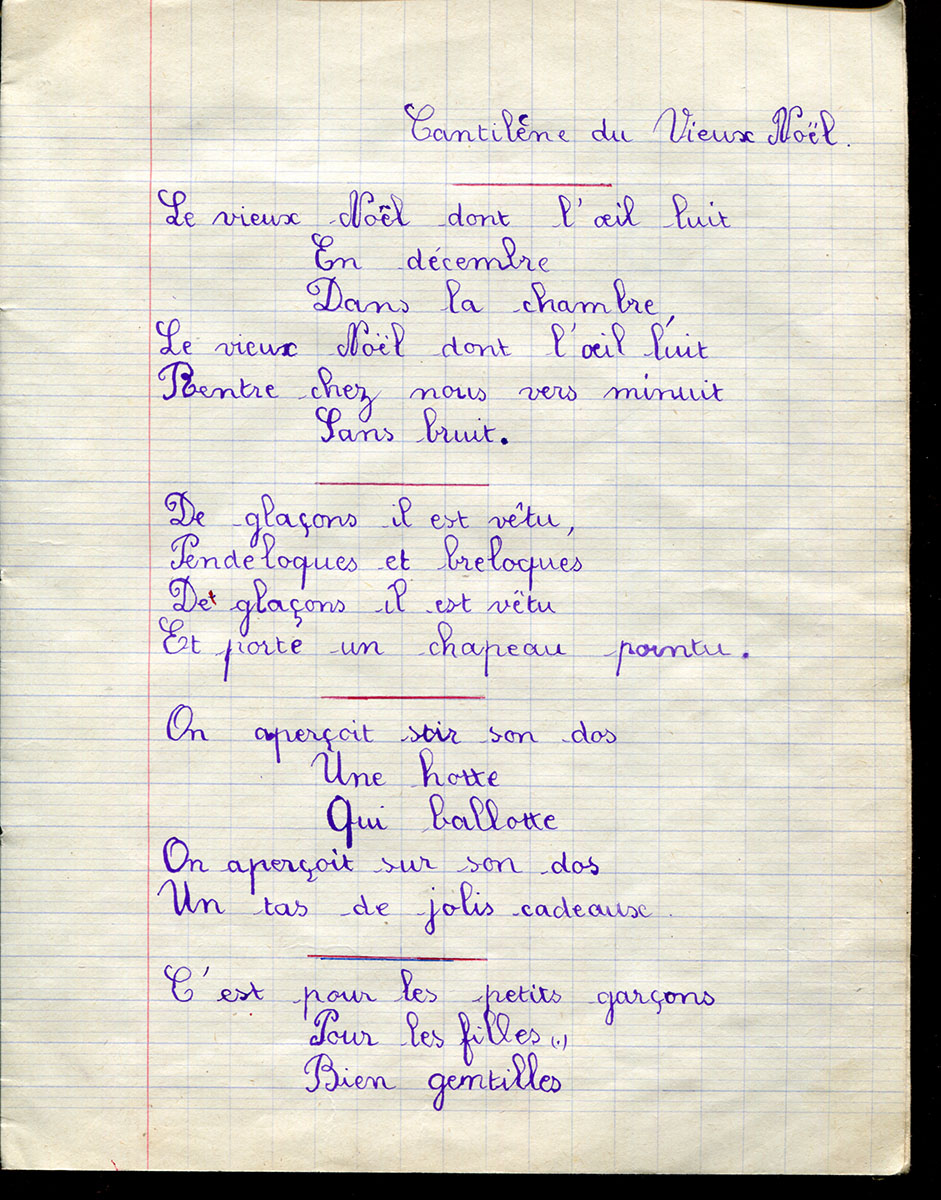 Cantilène du Vieux Noël.
Le vieux Noël dont l'œil luit
En décembre
Dans la chambre,
Le vieux Noël dont l'œil luit
Rentre chez nous vers minuit
Sans bruit.
De glaçons il est vêtu,
Pendeloques et breloques
De glaçons il est vêtu
Et porte un chapeau pointu.
On aperçoit sur son dos
Une hotte
Qui ballotte
On aperçoit sur son dos
Un tas de jolis cadeaux.
C'est pour les petits garçons
Pour les filles (,)
Bien gentilles